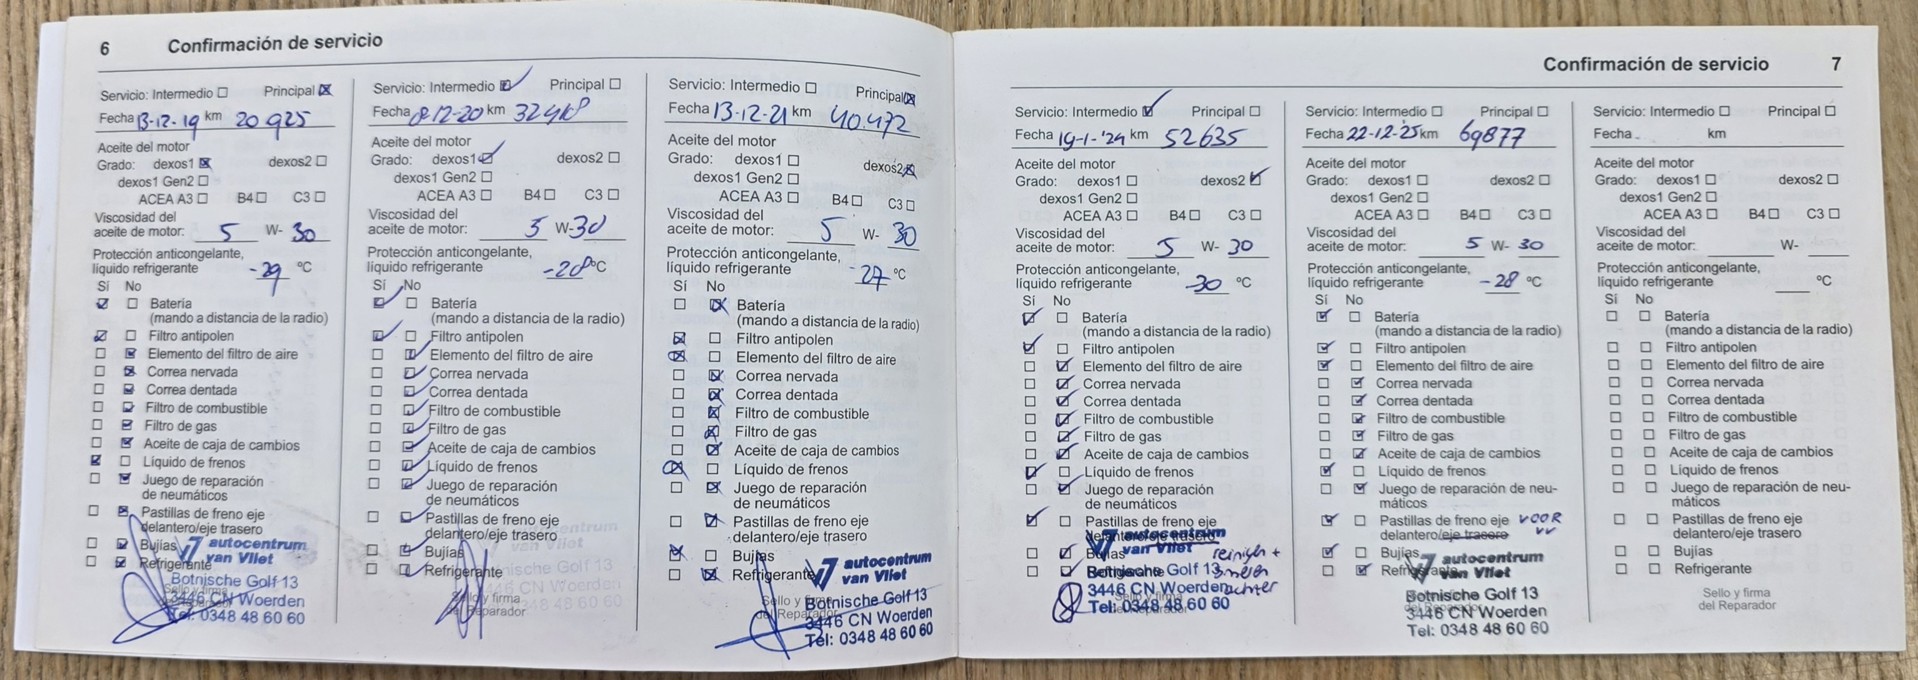 6 Confirmación de servicio
Servicio: Intermedio Principal
Fecha 13-12-19 km 20925
Aceite del motor
Grado: dexos1 dexos2
dexos1 Gen2
ACEA A3 B4 C3
Viscosidad del
aceite de motor: 5 W- 30
Protección anticongelante,
líquido refrigerante -29 °C
Sí No
Batería
(mando a distancia de la radio)
Filtro antipolen
Elemento del filtro de aire
Correa nervada
Correa dentada
Filtro de combustible
Filtro de gas
Aceite de caja de cambios
Líquido de frenos
Juego de reparación
de neumáticos
Pastillas de freno eje
delantero/eje trasero
Bujías
Refrigerante
autocentrum
van Vliet
Botnische Golf 13
3446 CN Woerden
Tel: 0348 48 60 60
Servicio: Intermedio Principal
Fecha 8-12-20 km
Aceite del motor
Grado: dexos1 dexos2
dexos1 Gen2
ACEA A3 B4 C3
Viscosidad del
aceite de motor: 5 W- 30
Protección anticongelante,
líquido refrigerante -28 °C
Sí No
Batería
(mando a distancia de la radio)
Filtro antipolen
Elemento del filtro de aire
Correa nervada
Correa dentada
Filtro de combustible
Filtro de gas
Aceite de caja de cambios
Líquido de frenos
Juego de reparación
de neumáticos
Pastillas de freno eje
delantero/eje trasero
Bujías
Refrigerante
Sello y firma
del Reparador
Servicio: Intermedio Principal
Fecha 13-12-21 km 40.472
Aceite del motor
Grado: dexos1 dexos2
dexos1 Gen2
ACEA A3 B4 C3
Viscosidad del
aceite de motor: 5 W- 30
Protección anticongelante,
líquido refrigerante -27 °C
Sí No
Batería
(mando a distancia de la radio)
Filtro antipolen
Elemento del filtro de aire
Correa nervada
Correa dentada
Filtro de combustible
Filtro de gas
Aceite de caja de cambios
Líquido de frenos
Juego de reparación
de neumáticos
Pastillas de freno eje
delantero/eje trasero
Bujías
Refrigerante
autocentrum
van Vliet
Sello y firma
del Reparador
Botnische Golf 13
3446 CN Woerden
Tel: 0348 48 60 60
Confirmación de servicio 7
Servicio: Intermedio Principal
Fecha 19-1-'24 km 52635
Aceite del motor
Grado: dexos1 dexos2
dexos1 Gen2
ACEA A3 B4 C3
Viscosidad del
aceite de motor: 5 W- 30
Protección anticongelante,
líquido refrigerante -30 °C
Sí No
Batería
(mando a distancia de la radio)
Filtro antipolen
Elemento del filtro de aire
Correa nervada
Correa dentada
Filtro de combustible
Filtro de gas
Aceite de caja de cambios
Líquido de frenos
Juego de reparación
de neumáticos
Pastillas de freno eje
delantero/eje trasero
Bujías
Refrigerante
autocentrum
van Vliet
Botnische Golf 13
3446 CN Woerden
Tel: 0348 48 60 60
achter
Servicio: Intermedio Principal
Fecha 22-12-'25 km 69877
Aceite del motor
Grado: dexos1 dexos2
dexos1 Gen2
ACEA A3 B4 C3
Viscosidad del
aceite de motor: 5 W- 30
Protección anticongelante,
líquido refrigerante -28 °C
Sí No
Batería
(mando a distancia de la radio)
Filtro antipolen
Elemento del filtro de aire
Correa nervada
Correa dentada
Filtro de combustible
Filtro de gas
Aceite de caja de cambios
Líquido de frenos
Juego de reparación de neu-
máticos
Pastillas de freno eje VOOR
delantero/eje trasero VV
Bujías
Refrigerante
autocentrum
van Vliet
Botnische Golf 13
3446 CN Woerden
Tel: 0348 48 60 60
Servicio: Intermedio Principal
Fecha km
Aceite del motor
Grado: dexos1 dexos2
dexos1 Gen2
ACEA A3 B4 C3
Viscosidad del
aceite de motor: W-
Protección anticongelante,
líquido refrigerante °C
Sí No
Batería
(mando a distancia de la radio)
Filtro antipolen
Elemento del filtro de aire
Correa nervada
Correa dentada
Filtro de combustible
Filtro de gas
Aceite de caja de cambios
Líquido de frenos
Juego de reparación de neu-
máticos
Pastillas de freno eje
delantero/eje trasero
Bujías
Refrigerante
Sello y firma
del Reparador